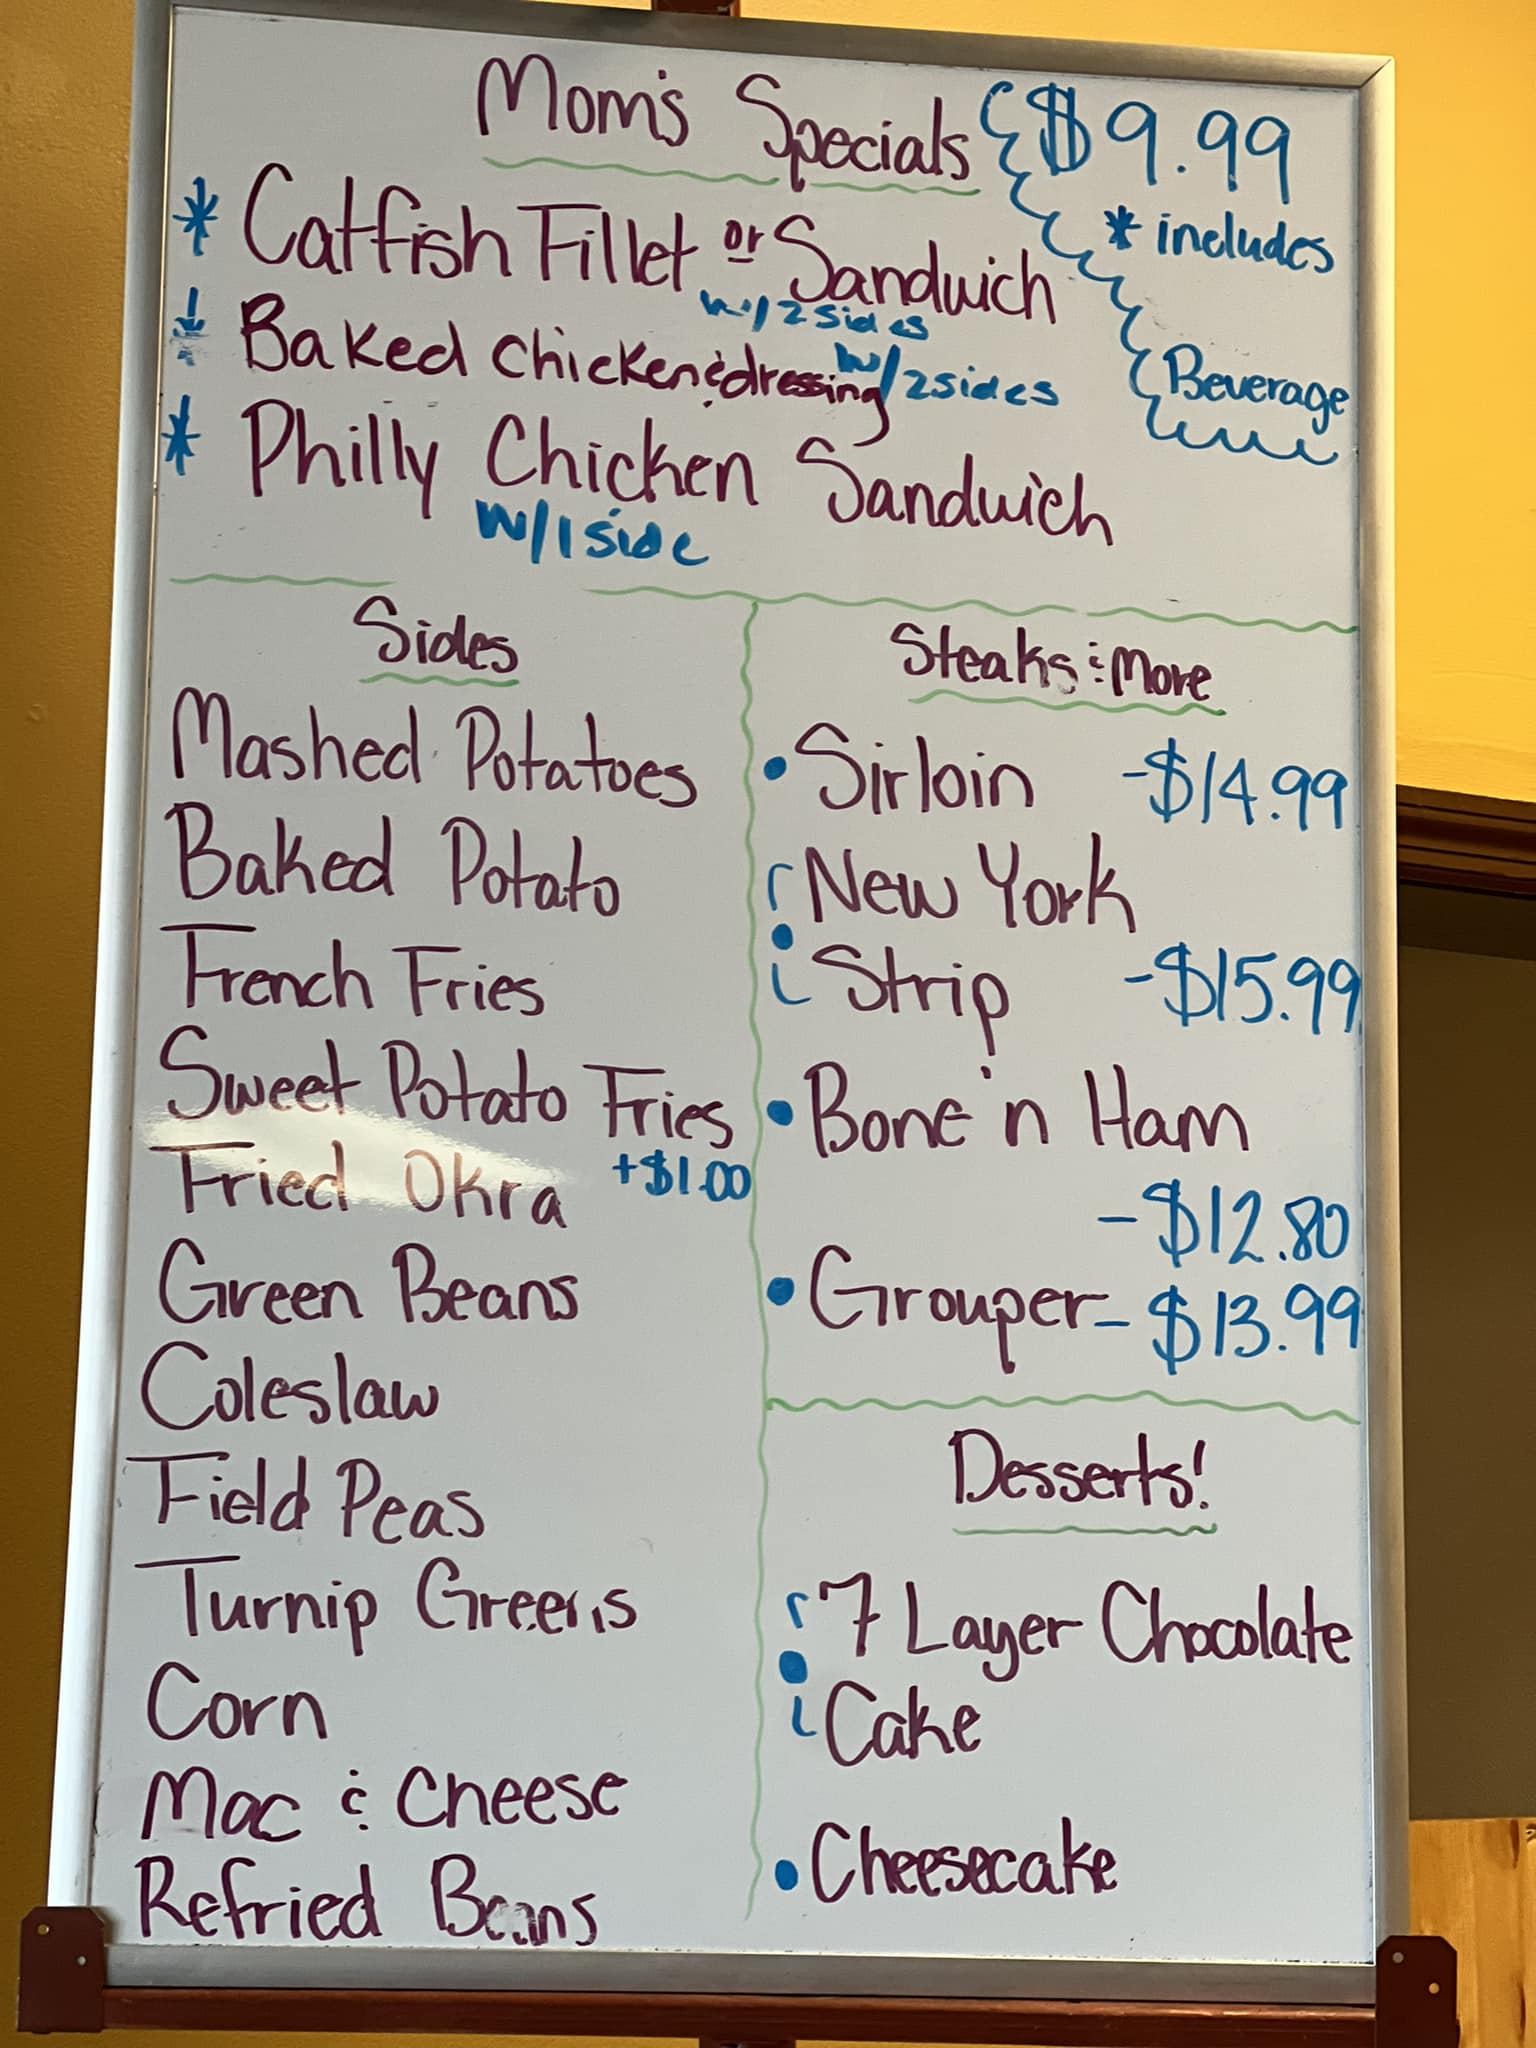 Mom's Specials $9.99
* includes
Beverage
* Catfish Fillet or Sandwich
w/ 2 sides
Baked Chicken & dressing w/ 2 sides
* Philly Chicken Sandwich
w/ 1 side
Sides
Mashed Potatoes
Baked Potato
French Fries
Sweet Potato Fries
+$1.00
Fried Okra
Green Beans
Coleslaw
Field Peas
Turnip Greens
Corn
Mac & Cheese
Refried Beans
Steaks & More
• Sirloin -$14.99
• New York
Strip -$15.99
• Bone 'n Ham
-$12.80
• Grouper -$13.99
Desserts!
• 7 Layer Chocolate
Cake
• Cheesecake